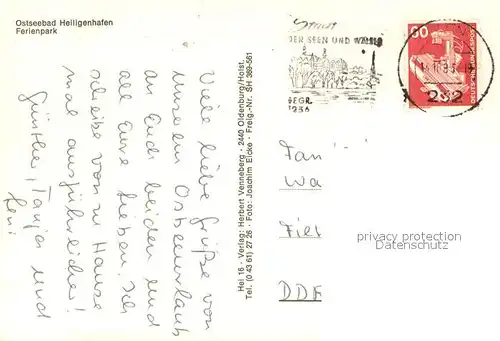 Ostseebad Heiligenhafen
Ferienpark
Viele liebe Grüße von
unserem Ostseeurlaub
an Euch beiden und
alle Eure Lieben. Ich
schreibe von zu Hause
mal ausführlicher!
Günther, Tanja und
Hei 16 · Verlag: Herbert Venneberg · 2440 Oldenburg/Holst.
Tel. (0 43 61) 27 26 · Foto: Joachim Eicke · Freig.-Nr. SH 369-561
DER SEEN UND WÄLDER
GEGR.
1236
60
DEUTSCHE BUNDESPOST
Fan
Wa
DDR
privacy protection
Datenschutz